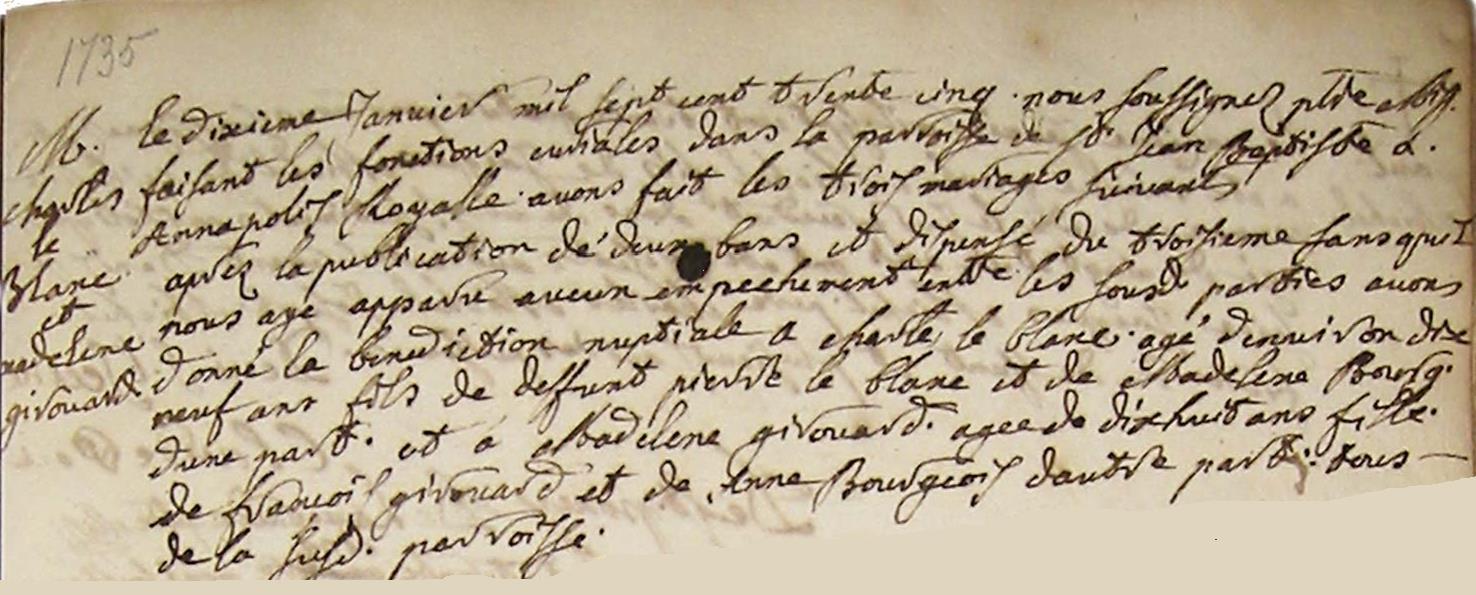 1735
M.
charles
le
Blanc
et
madelene
girouard
le dixieme Janvier mil sept cent trente cinq. nous soussignez ptre Miss.
faisant les fonctions curiales dans la parroisse de St Jean Baptiste a.
Annapolis Royalle. avons fait les trois mariages suivants
aprez la publication de deux bans et dispensé du troisieme sans qu'il
nous aye apparu aucun empechement entre les susd. parties avons
donné la benediction nuptiale a charle le blanc. agé denviron dix
neuf ans fils de deffunt pierre le blanc et de Madelene Bourg.
dune part. et a Madelene girouard. agee de dixhuit ans fille.
de francois girouard et de Anne Bourgeois dautre part: tous —
de la susd. parroisse.